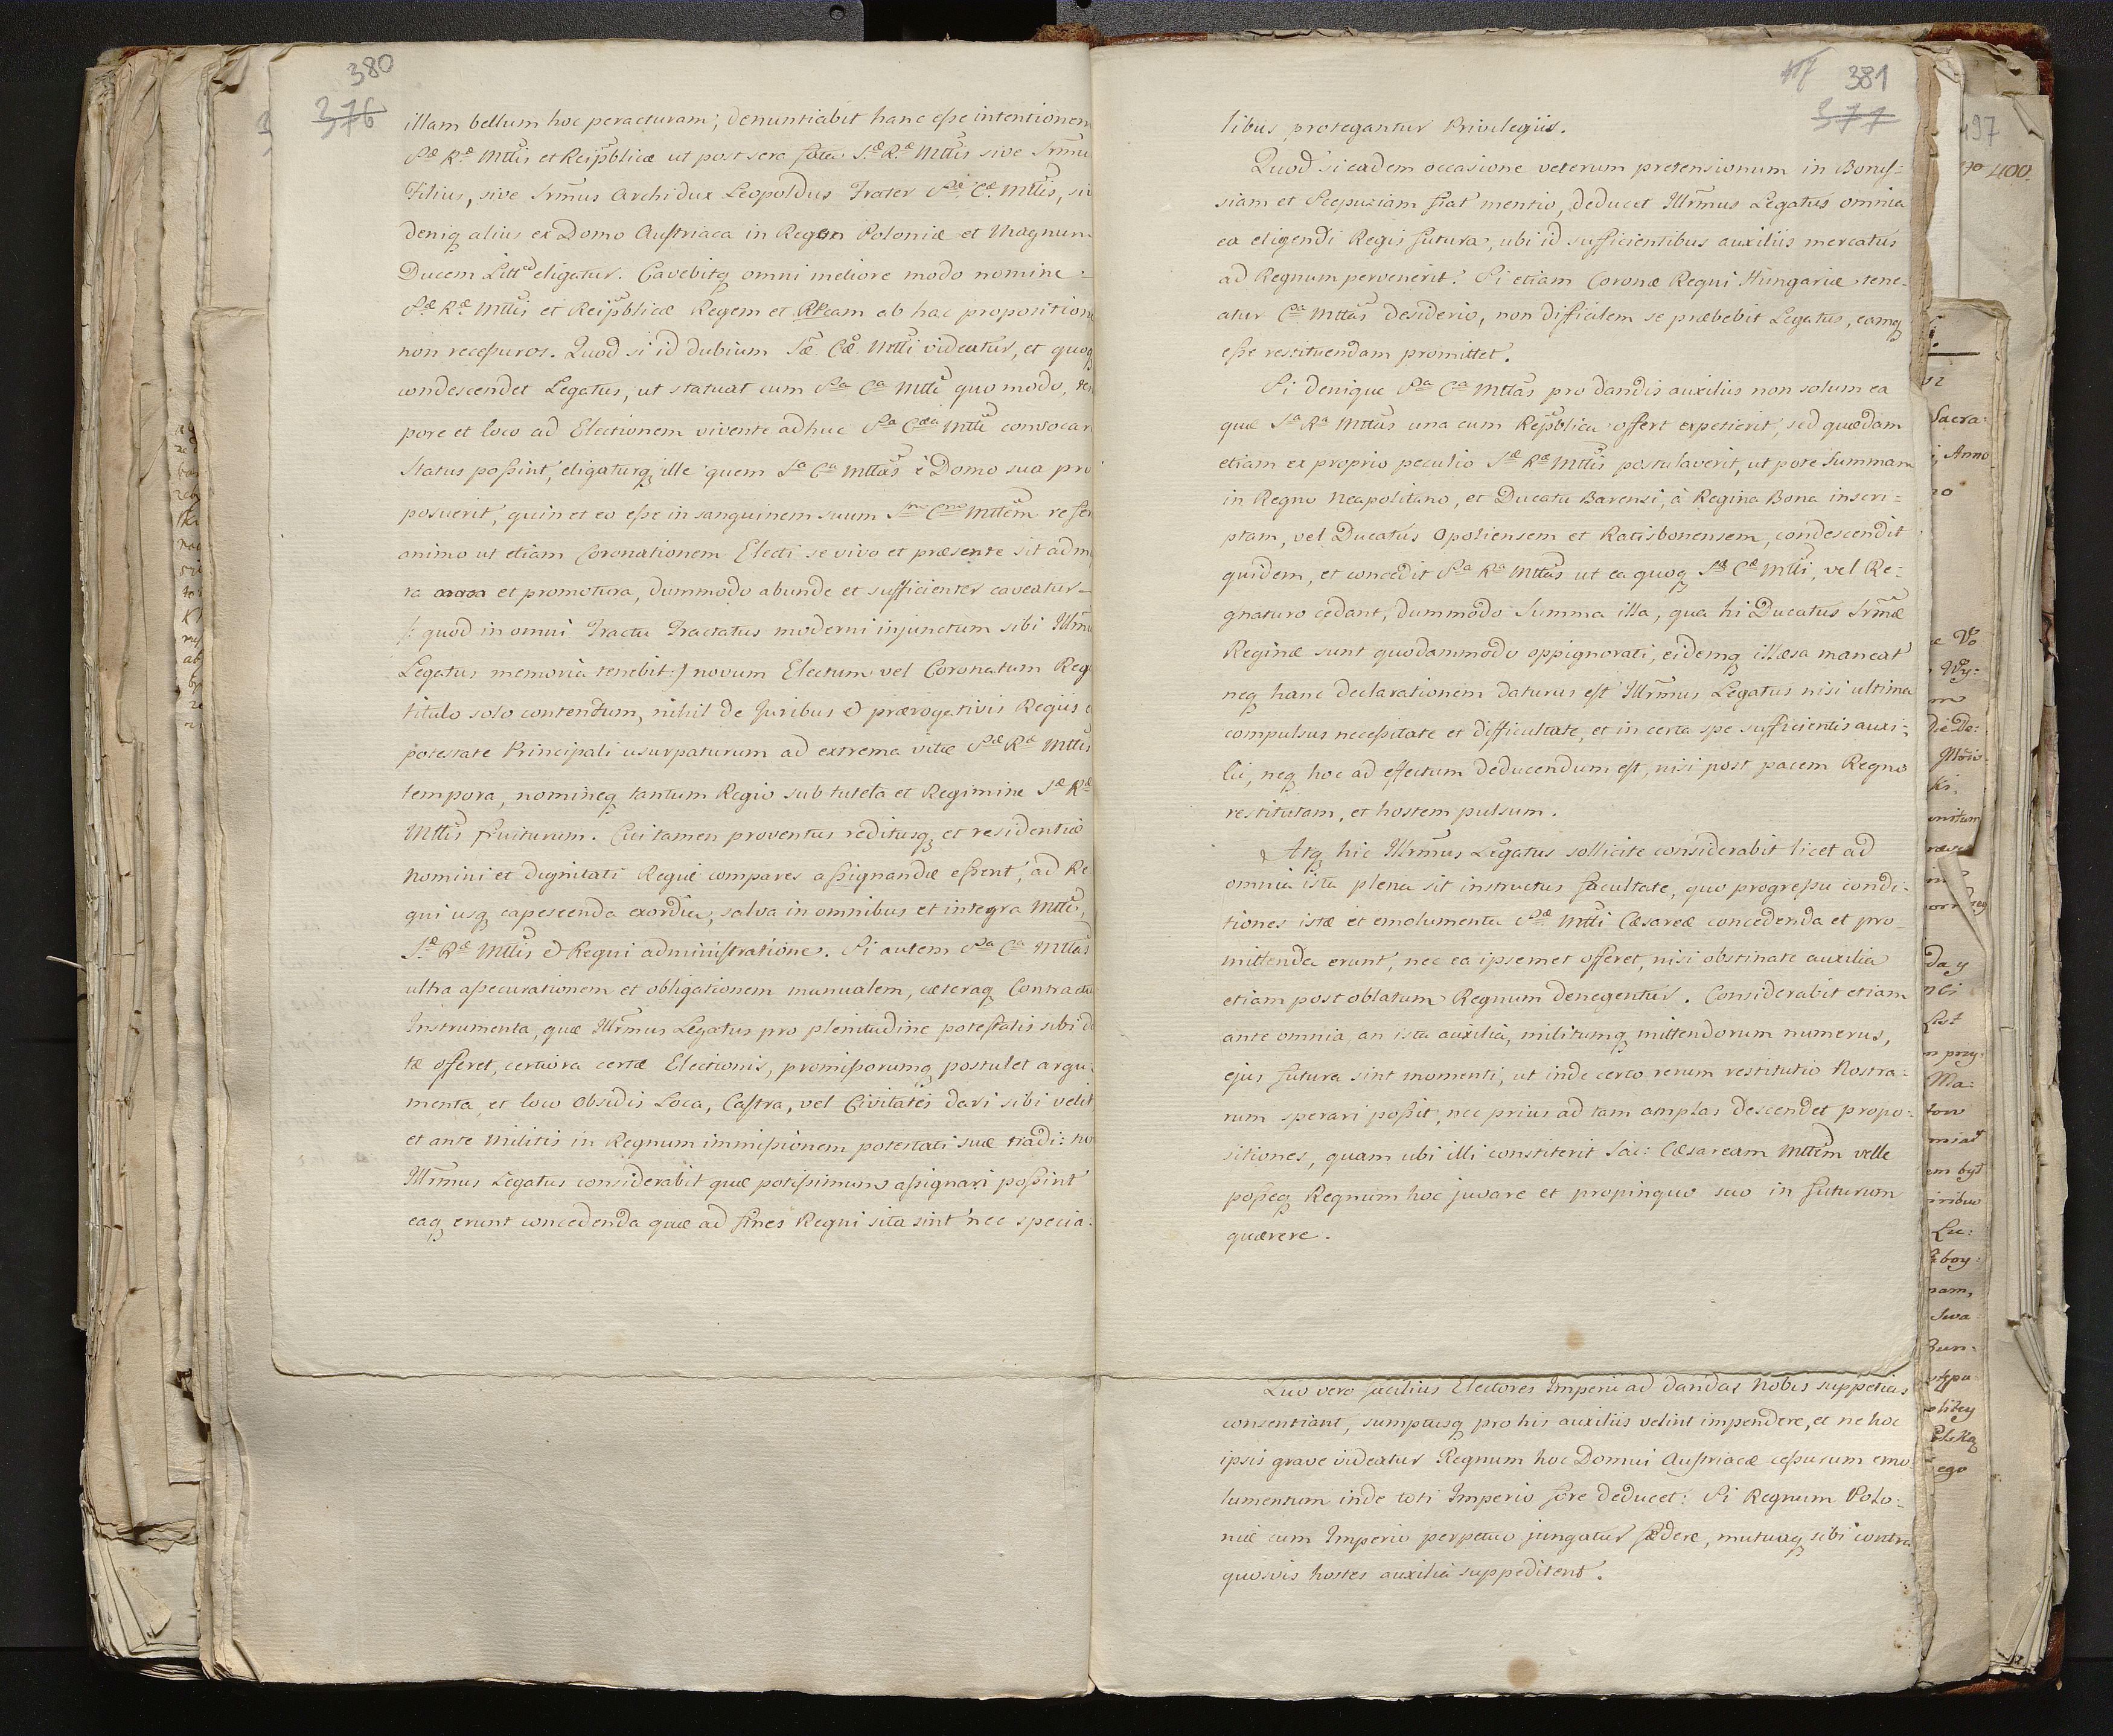 380
376
illam bellum hoc peracturam; denuntiabit hanc esse intentionem
Sæ Ræ Mttis et Reipblicæ ut post sera fata Sæ Ræ Mttis sive Srmus
Filius, sive Srmus Archidux Leopoldus Frater Sæ Cæ Mttis, si
deniq alius ex Domo Austriaca in Regem Poloniæ et Magnum
Ducem Littæ eligatur. Cavebitq omni meliore modo nomine
Sæ Ræ Mttis et Reipblicæ Regem et Rpcam ab hac proposition
non recessuros. Quod si id dubium Sæ Cæ Mtti videatur, et quoq
condescendet Legatus, ut statuat cum Sa Ca Mtte quo modo, tem
pore et loco ad Electionem vivente adhuc Sa Cæa Mtte convocari
Status possint, eligaturq ille quem Sa Ca Mttas è Domo sua pro
posuerit, quin et eo esse in sanguinem suum Sm Cm Mttem refer
animo ut etiam Coronationem Electi se vivo et præsente sit admi
ra et promotura, dummodo abunde et sufficienter caveatur
/: quod in omni Tractu Tractatus moderni injunctum sibi Illrmus
Legatus memoria tenebit:/ novum Electum vel Coronatum Reg
titulo solo contentum, nihil de Juribus et prærogativis Regiis e
potestate Principali usurpaturum ad extrema vitæ Sæ Ræ Mttis
tempora, nomineq tantum Regio sub tutela et Regimine Sæ Ræ
Mttis fruiturum. Cui tamen proventus reditusq et residentiæ
nomini et dignitati Regiæ compares assignandæ essent, ad Re
gni usq capescenda exordia, salva in omnibus et integra Mttis,
Sæ Ræ Mttis et Regni administratione. Si autem Sa Ca Mttas
ultra assecurationem et obligationem manualem, cæteraq Contractu
Instrumenta, quæ Illrmus Legatus pro plenitudine potestatis sibi da
tæ offeret, certiora certæ Electionis, promissorumq postulet argu:
menta, et loco Obsidis Loca, Castra, vel Civitates dari sibi velit
et ante Militis in Regnum immissionem potestati suæ tradi: ho
Illrmus Legatus considerabit quæ potissimum assignari possint
eaq erunt concedenda quæ ad fines Regni sita sint nec specia:
417 381
377
libus protegantur Privilegiis.
Quod si eadem occasione veterum pretensionum in Borus=
siam et Scepusiam fiat mentio, deducet Illrmus Legatus omnia
ea eligendi Regis futura, ubi id sufficientibus auxiliis mercatus
ad Regnum pervenerit. Si etiam Coronæ Regni Hungariæ tene=
atur Ca Mttas desiderio, non difficilem se præbebit Legatus, eamq
esse restituendam promittet.
Si denique Sa Ca Mttas pro dandis auxiliis non solum ea
quæ Sa Ra Mttas una cum Repblica offert expetierit, sed quædam
etiam ex proprio peculio Sæ Ræ Mttis postulaverit, ut pote Summam
in Regno Neapolitano, et Ducatu Barensi, à Regina Bona inscri=
ptam, vel Ducatus Opoliensem et Ratisbonensem, condescendit
quidem, et concedit Sa Ra Mttas ut ea quoq Sæ Cæ Mtti, vel Re=
gnaturo cedant, dummodo Summa illa, qua hi Ducatus Srmæ
Reginæ sunt quodammodo oppignorati, eidemq illæsa maneat
neq hanc declarationem daturus est Illrmus Legatus nisi ultima
compulsus necessitate et difficultate, et in certa spe sufficientis auxi=
lii, neq hoc ad effectum deducendum est, nisi post pacem Regno
restitutam, et hostem pulsum.
Atq hic Illrmus Legatus sollicite considerabit licet ad
omnia ista plena sit instructus facultate, quo progressu condi=
tiones istæ et emolumenta Sæ Mtti Cæsareæ concedenda et pro
mittenda erunt, nec ea ipsemet offeret, nisi obstinate auxilia
etiam post oblatum Regnum denegentur. Considerabit etiam
ante omnia, an ista auxilia, militumq mittendorum numerus,
ejus futura sint momenti, ut inde certo rerum restitutio Nostra=
rum sperari possit, nec prius ad tam amplas descendet propo=
sitiones, quam ubi illi constiterit Sac: Cæsaream Mttem velle
posseq Regnum hoc juvare et propinquo suo in futurum
quærere.
Quo vero facilius Electores Imperii ad dandas Nobis suppetias
consentiant, sumptusq pro his auxiliis velint impendere, et ne hoc
ipsis grave videatur Regnum hoc Domui Austriacæ cessurum emo
lumentum inde toti Imperio fore deducet: Si Regnum Polo=
niæ cum Imperio perpetuo jungatur fædere, mutuaq sibi contra
quosvis hostes auxilia suppeditent.
497
400
Sacra:
Anno